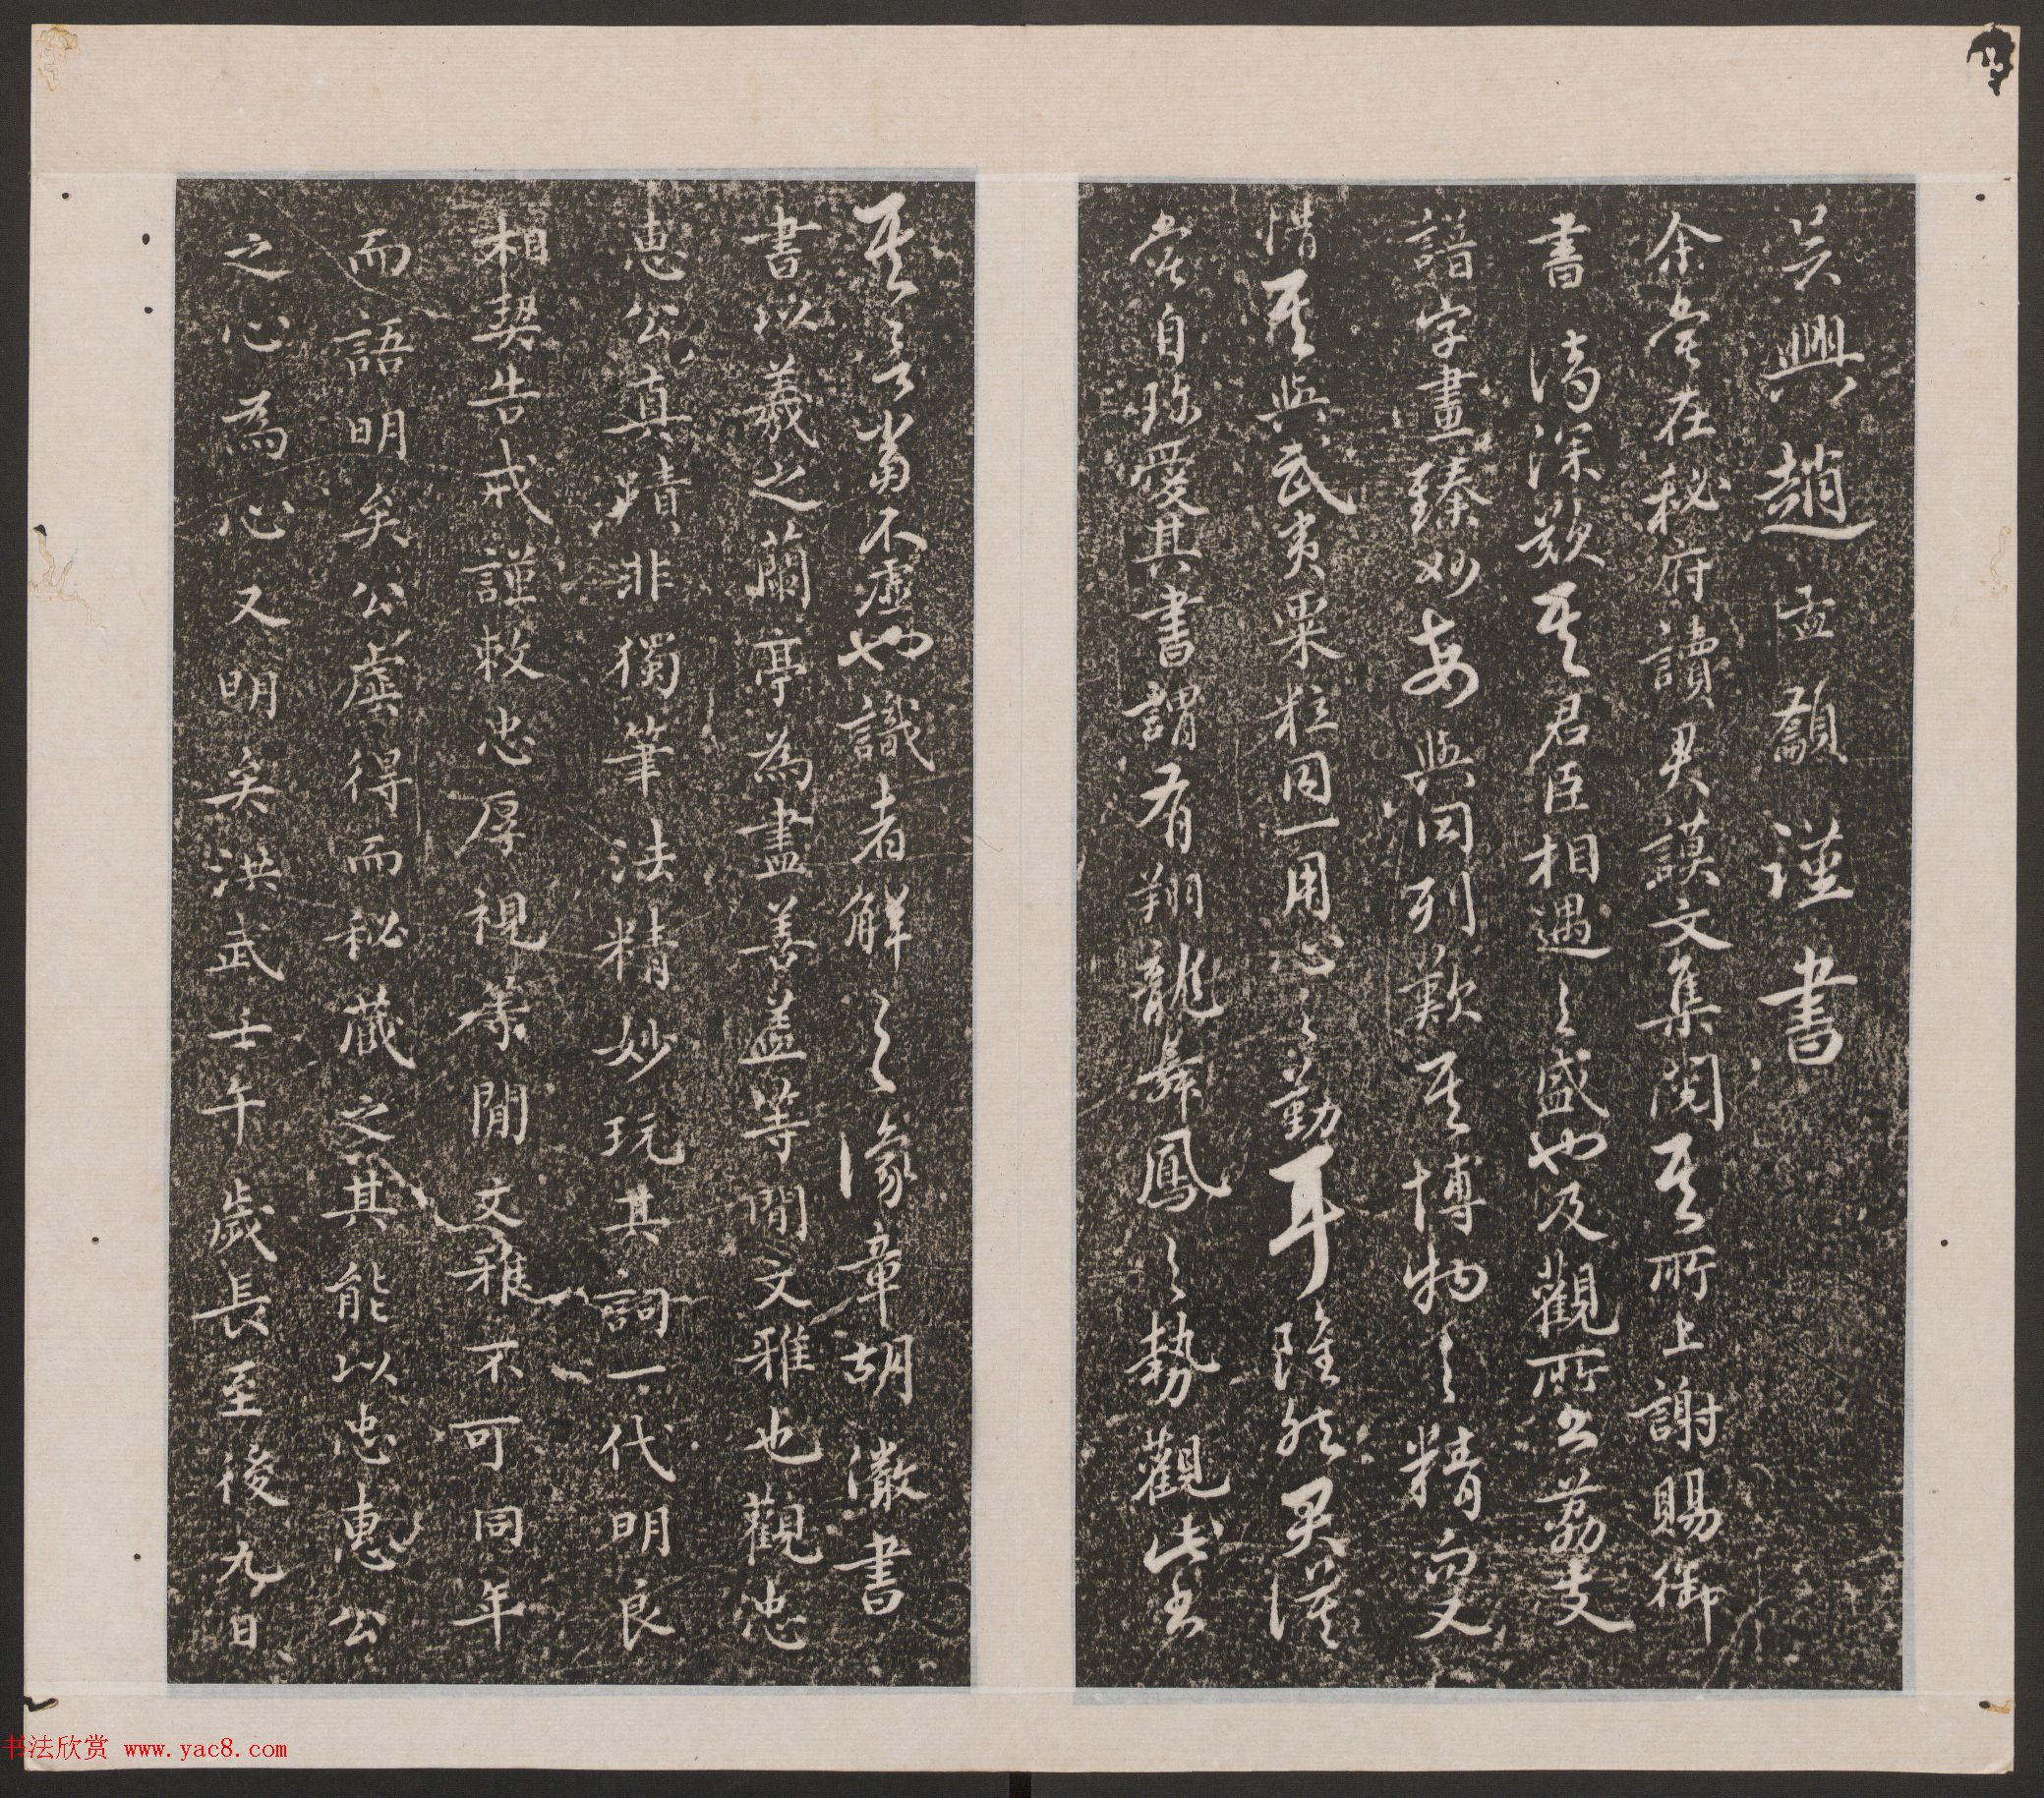 吳興趙孟頫謹書
余嘗在秘府讀君謨文集閱其所上謝賜御
書詩深歎其君臣相遇之盛也及觀所書荔支
譜字畫臻妙与同列歎其博物之精而又
惜其與武夷粟粒同一用心之勤耳雖然君謨
嘗自珍愛其書謂有翔龍舞鳳之勢觀此書
其言當不虛也識者解之豫章胡儼書
書以羲之蘭亭為盡善盖等閒文雅也觀忠
惠公真蹟非獨筆法精妙玩其詞一代明良
相契告戒謹敕忠厚視等閒文雅不可同年
而語明矣公虞得而秘蔵之其能以忠惠公
之心為心又明矣洪武壬午歲長至後九日
书法欣赏 www.yac8.com